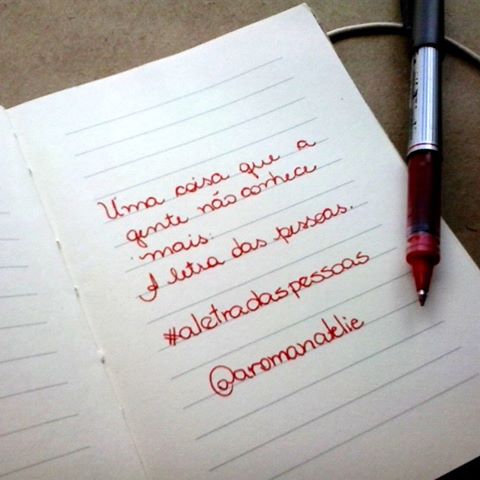 Uma coisa que a
gente não conhece
mais:
A letra das pessoas.
#aletradaspessoas
@aromanatelie